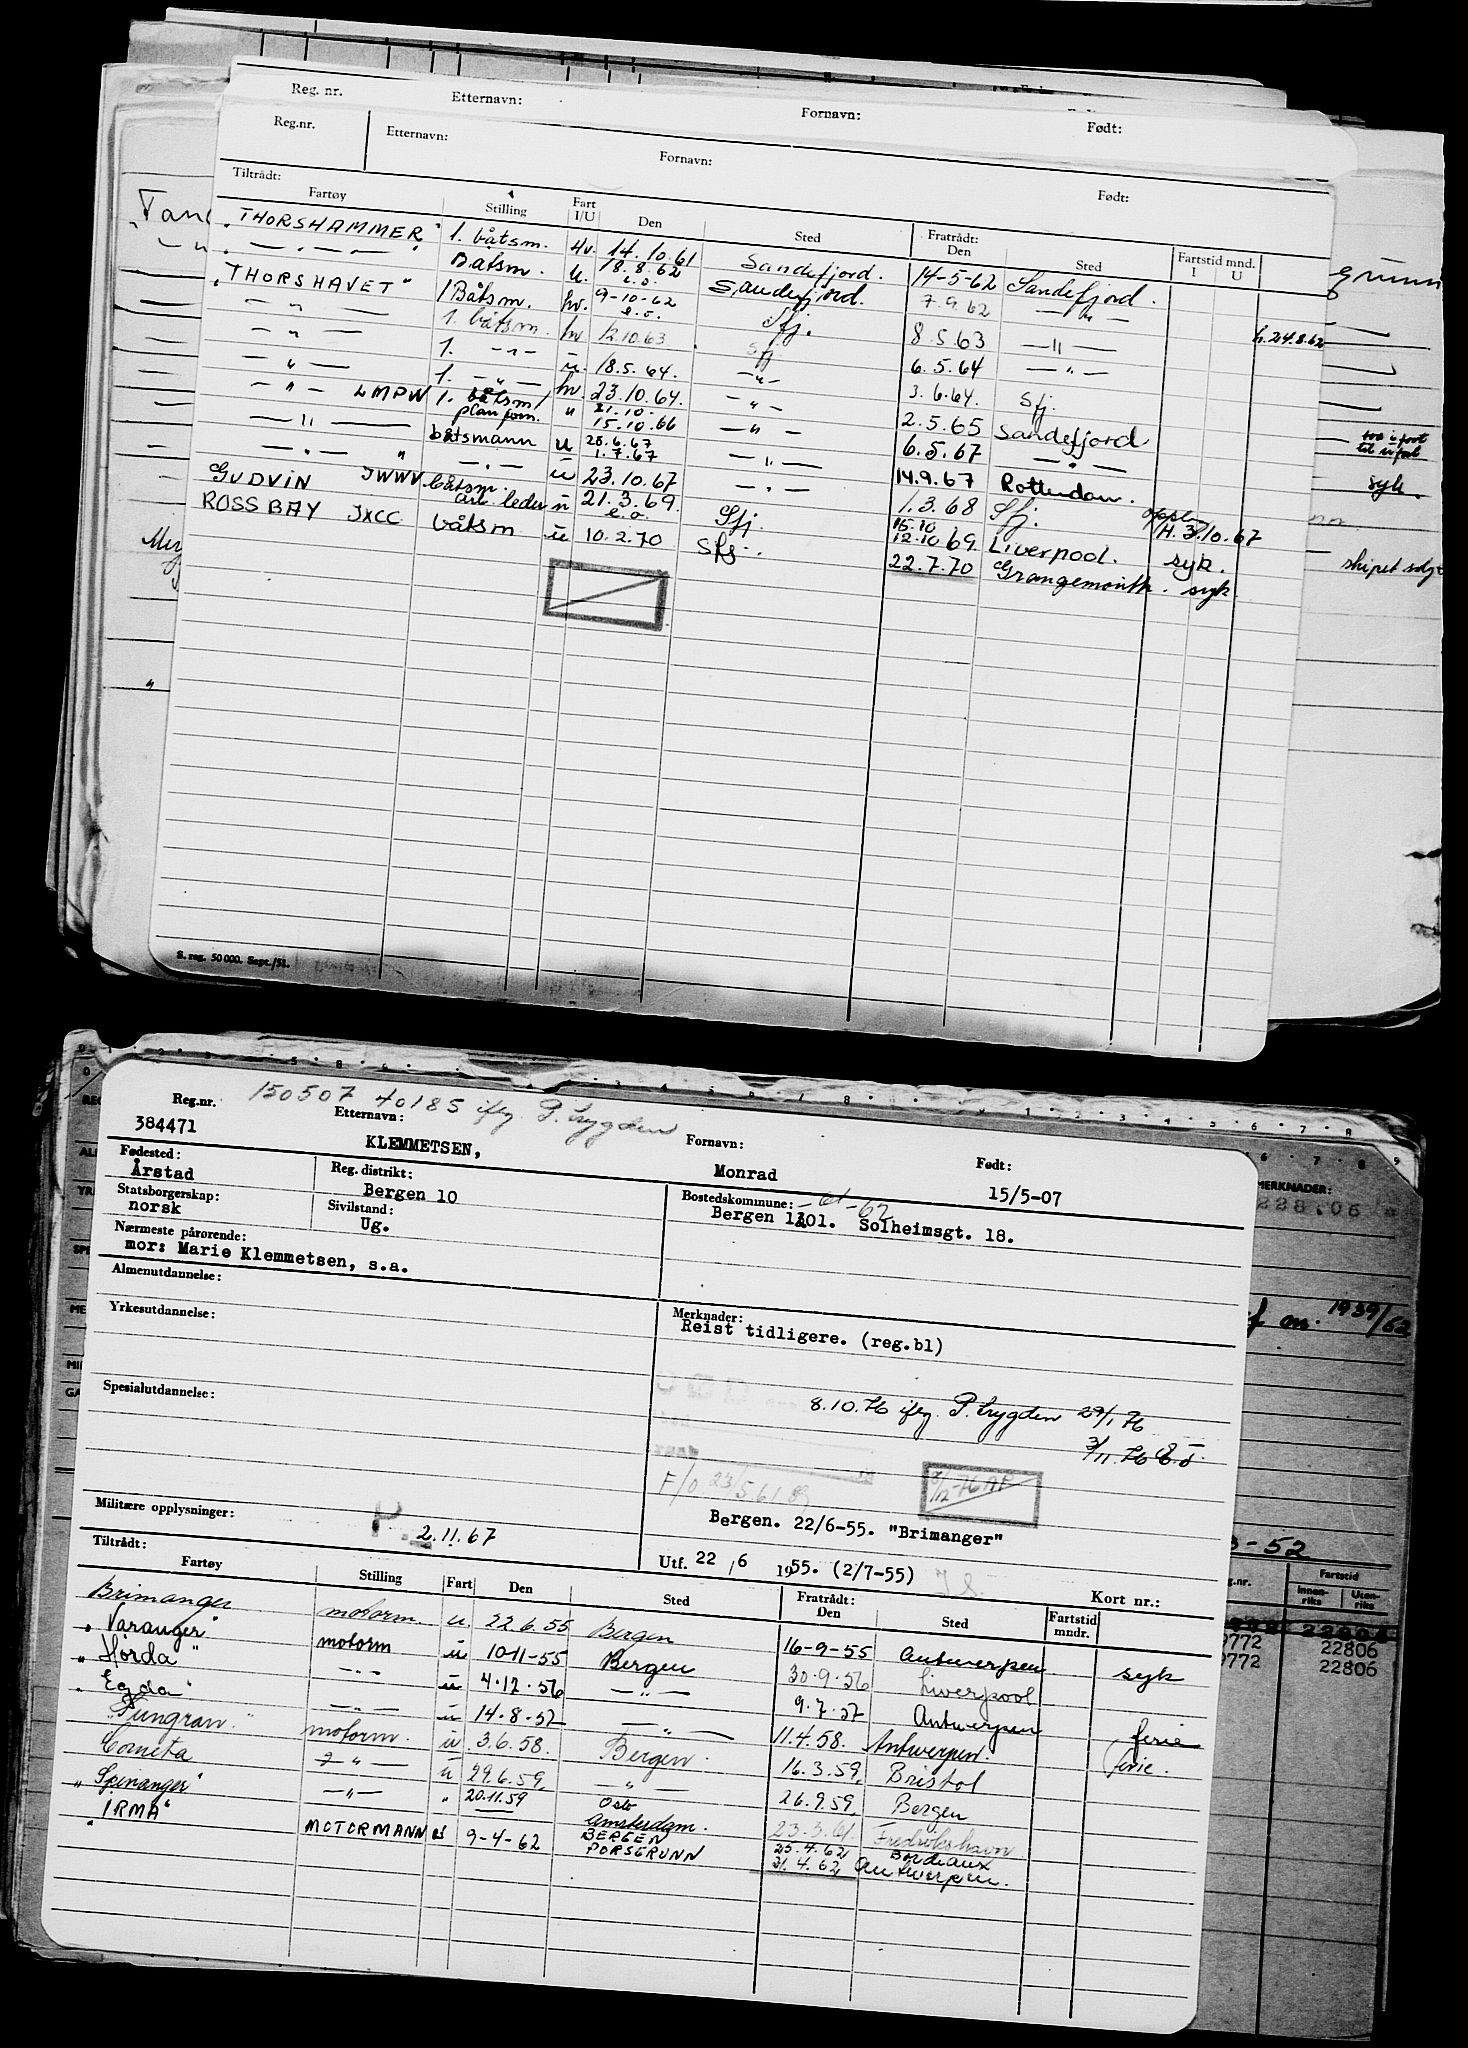 Reg. nr. Etternavn: Fornavn: Født:
Reg.nr. Etternavn: Fornavn: Født:
Tiltrådt: Fratrådt: Fartstid mnd.
Fartøy Stilling Fart I/U Den Sted Den Sted I U
"THORSHAMMER" 1. båtsm. hv. 14.10.61 Sandefjord. 14-5-62 Sandefjord.
— " — Båtsm. u. 18.8.62 Sandefjord. 7.9.62 — " — h.24.8.62
"THORSHAVET" 1 Båtsm. hv. 9-10-62 Sfj. 8.5.63 — " —
— " — 1. båtsm. hv 12.10.63 Sfj 6.5.64 — " —
— " — 1. — " — u. 18.5.64. — " — 3.6.64. Sfj.
— " — 1. — " — hv. 23.10.64. — " — 2.5.65 Sandefjord.
— " — LMPW 1. båtsm/ plan form. u 21.10. 15.10.66 — " — 6.5.67 — " —
— " — båtsmann u 28.6.67 1.7.67 — " — 14.9.67 Rotterdam.
— " — — " — u 23.10.67 — " — 1.3.68 Sfj. H. 3.10.67
GUDVIN JWWV båtsm. arb. leder u 21.3.69. Sfj. 15.10 12.10.69. Liverpool. syk.
ROSS BAY JXCC båtsm u 10.2.70 Sfj. 22.7.70 Grangemouth. syk
syk.
skipet solgt
S. reg. 50000. Sept./51.
150507 40185 iflg. P. trygden
Reg.nr. Etternavn: Fornavn: Født:
384471 KLEMMETSEN, Monrad 15/5-07
Fødested: Reg. distrikt: Bostedskommune:
Årstad Bergen 10 Bergen 1301. Solheimsgt. 18.
Statsborgerskap: Sivilstand:
norsk Ug.
Nærmeste pårørende:
mor: Marie Klemmetsen, s.a.
Almenutdannelse:
Yrkesutdannelse: Merknader:
Reist tidligere. (reg.bl)
Spesialutdannelse:
8.10.76 iflg. P. trygden 29/1 76
3/11.76
F/0 23/5 61
Militære opplysninger:
P. 2.11.67
Bergen. 22/6-55. "Brimanger"
Utf. 22/6 1955. (2/7-55)
Tiltrådt: Fratrådt: Kort nr.:
Fartøy Stilling Fart Den Sted Den Sted Fartstid mndr.
Brimanger motorm. u. 22.6.55 Bergen 16-9-55 Antwerpen syk
"Varanger" motorm u 10-11-55 Bergen 30.9.56 Liverpool
"Horda" — " — u 4.12.56 — " — 9.7.57 Antwerpen ferie
"Egda" — " — u 14-8-57 — " — 11.4.58. Antwerpen. ferie.
motorm. u 3.6.58. Bergen. 16.3.59, Bristol
Cometa — " — u 29.6.59, — " — 26.9.59, Bergen
"Spinanger" — " — " 20.11.59 Oslo 23.3.61. Fredrikshavn
"IRMA" MOTORMANN u 9-4-62 Amsterdam. BERGEN PORSGRUNN 25.4.62 Bordeaux
31.4.62 Antwerpen.
MERKNADER:
22806
1939/62
3-52
Fartstid
Innen-riks Uten-riks
9772 22806
9772 22806